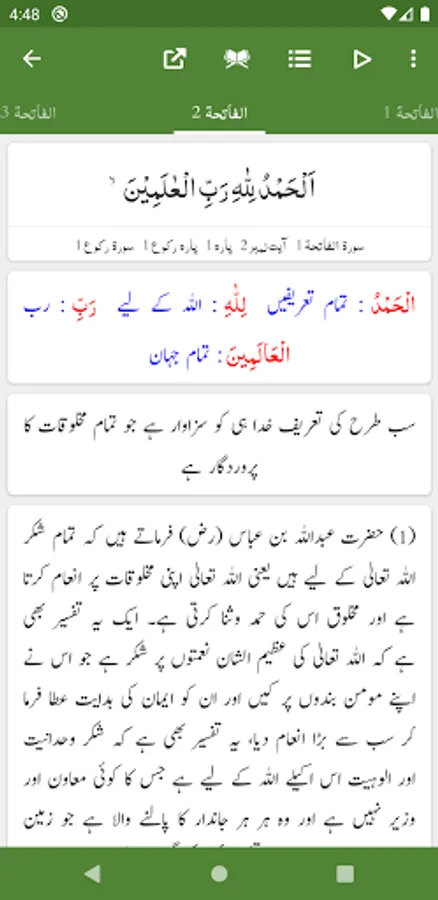 4:48
الفاتحة 1
الفاتحة 2
الفاتحة 3
اَلْحَمْدُ لِلّٰهِ رَبِّ الْعٰلَمِيْنَ ۙ
سورۃ الفاتحة 1 آیت نمبر 2 پارہ 1 پارہ رکوع 1 سورۃ رکوع 1
الْحَمْدُ : تمام تعریفیں لِلّٰهِ : اللہ کے لیے رَبِّ : رب
الْعَالَمِينَ : تمام جہان
سب طرح کی تعریف خدا ہی کو سزاوار ہے جو تمام مخلوقات کا
پروردگار ہے
(1) حضرت عبداللہ بن عباس (رض) فرماتے ہیں کہ تمام شکر
اللہ تعالیٰ کے لیے ہیں یعنی اللہ تعالیٰ اپنی مخلوقات پر انعام کرتا
ہے اور مخلوق اس کی حمد وثنا کرتی ہے۔ ایک یہ تفسیر بھی
ہے کہ اللہ تعالیٰ کی عظیم الشان نعمتوں پر شکر ہے جو اس نے
اپنے مومن بندوں پر کیں اور ان کو ایمان کی ہدایت عطا فرما
کر سب سے بڑا انعام دیا، یہ تفسیر بھی ہے کہ شکر وحدانیت
اور الوہیت اس اکیلے اللہ کے لیے ہے جس کا کوئی معاون اور
وزیر نہیں ہے اور وہ ہر ہر جاندار کا پالنے والا ہے جو زمین